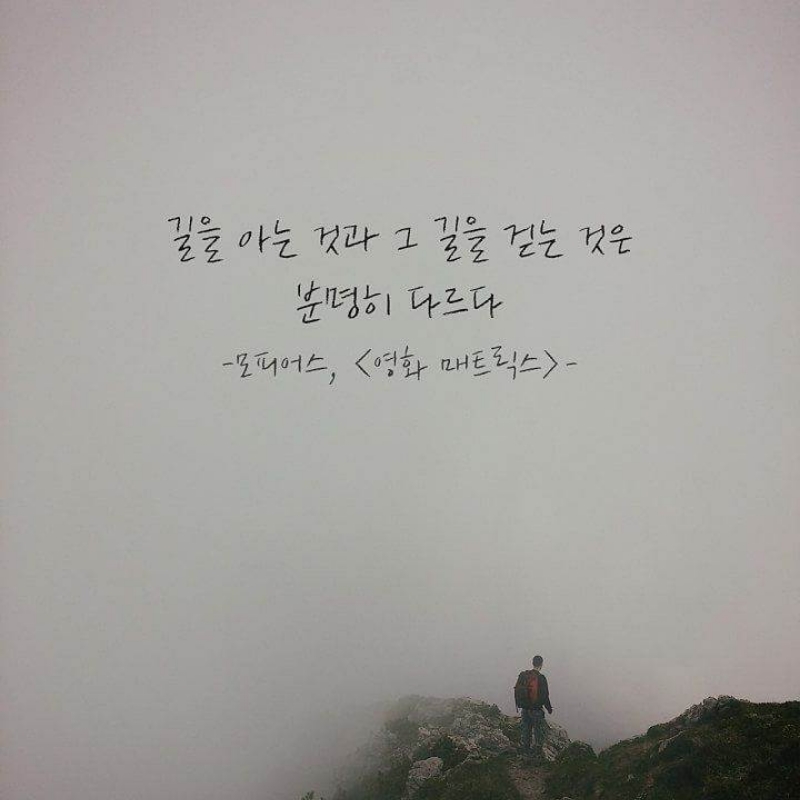 길을 아는 것과 그 길을 걷는 것은
분명히 다르다
-모피어스, <영화 매트릭스>-